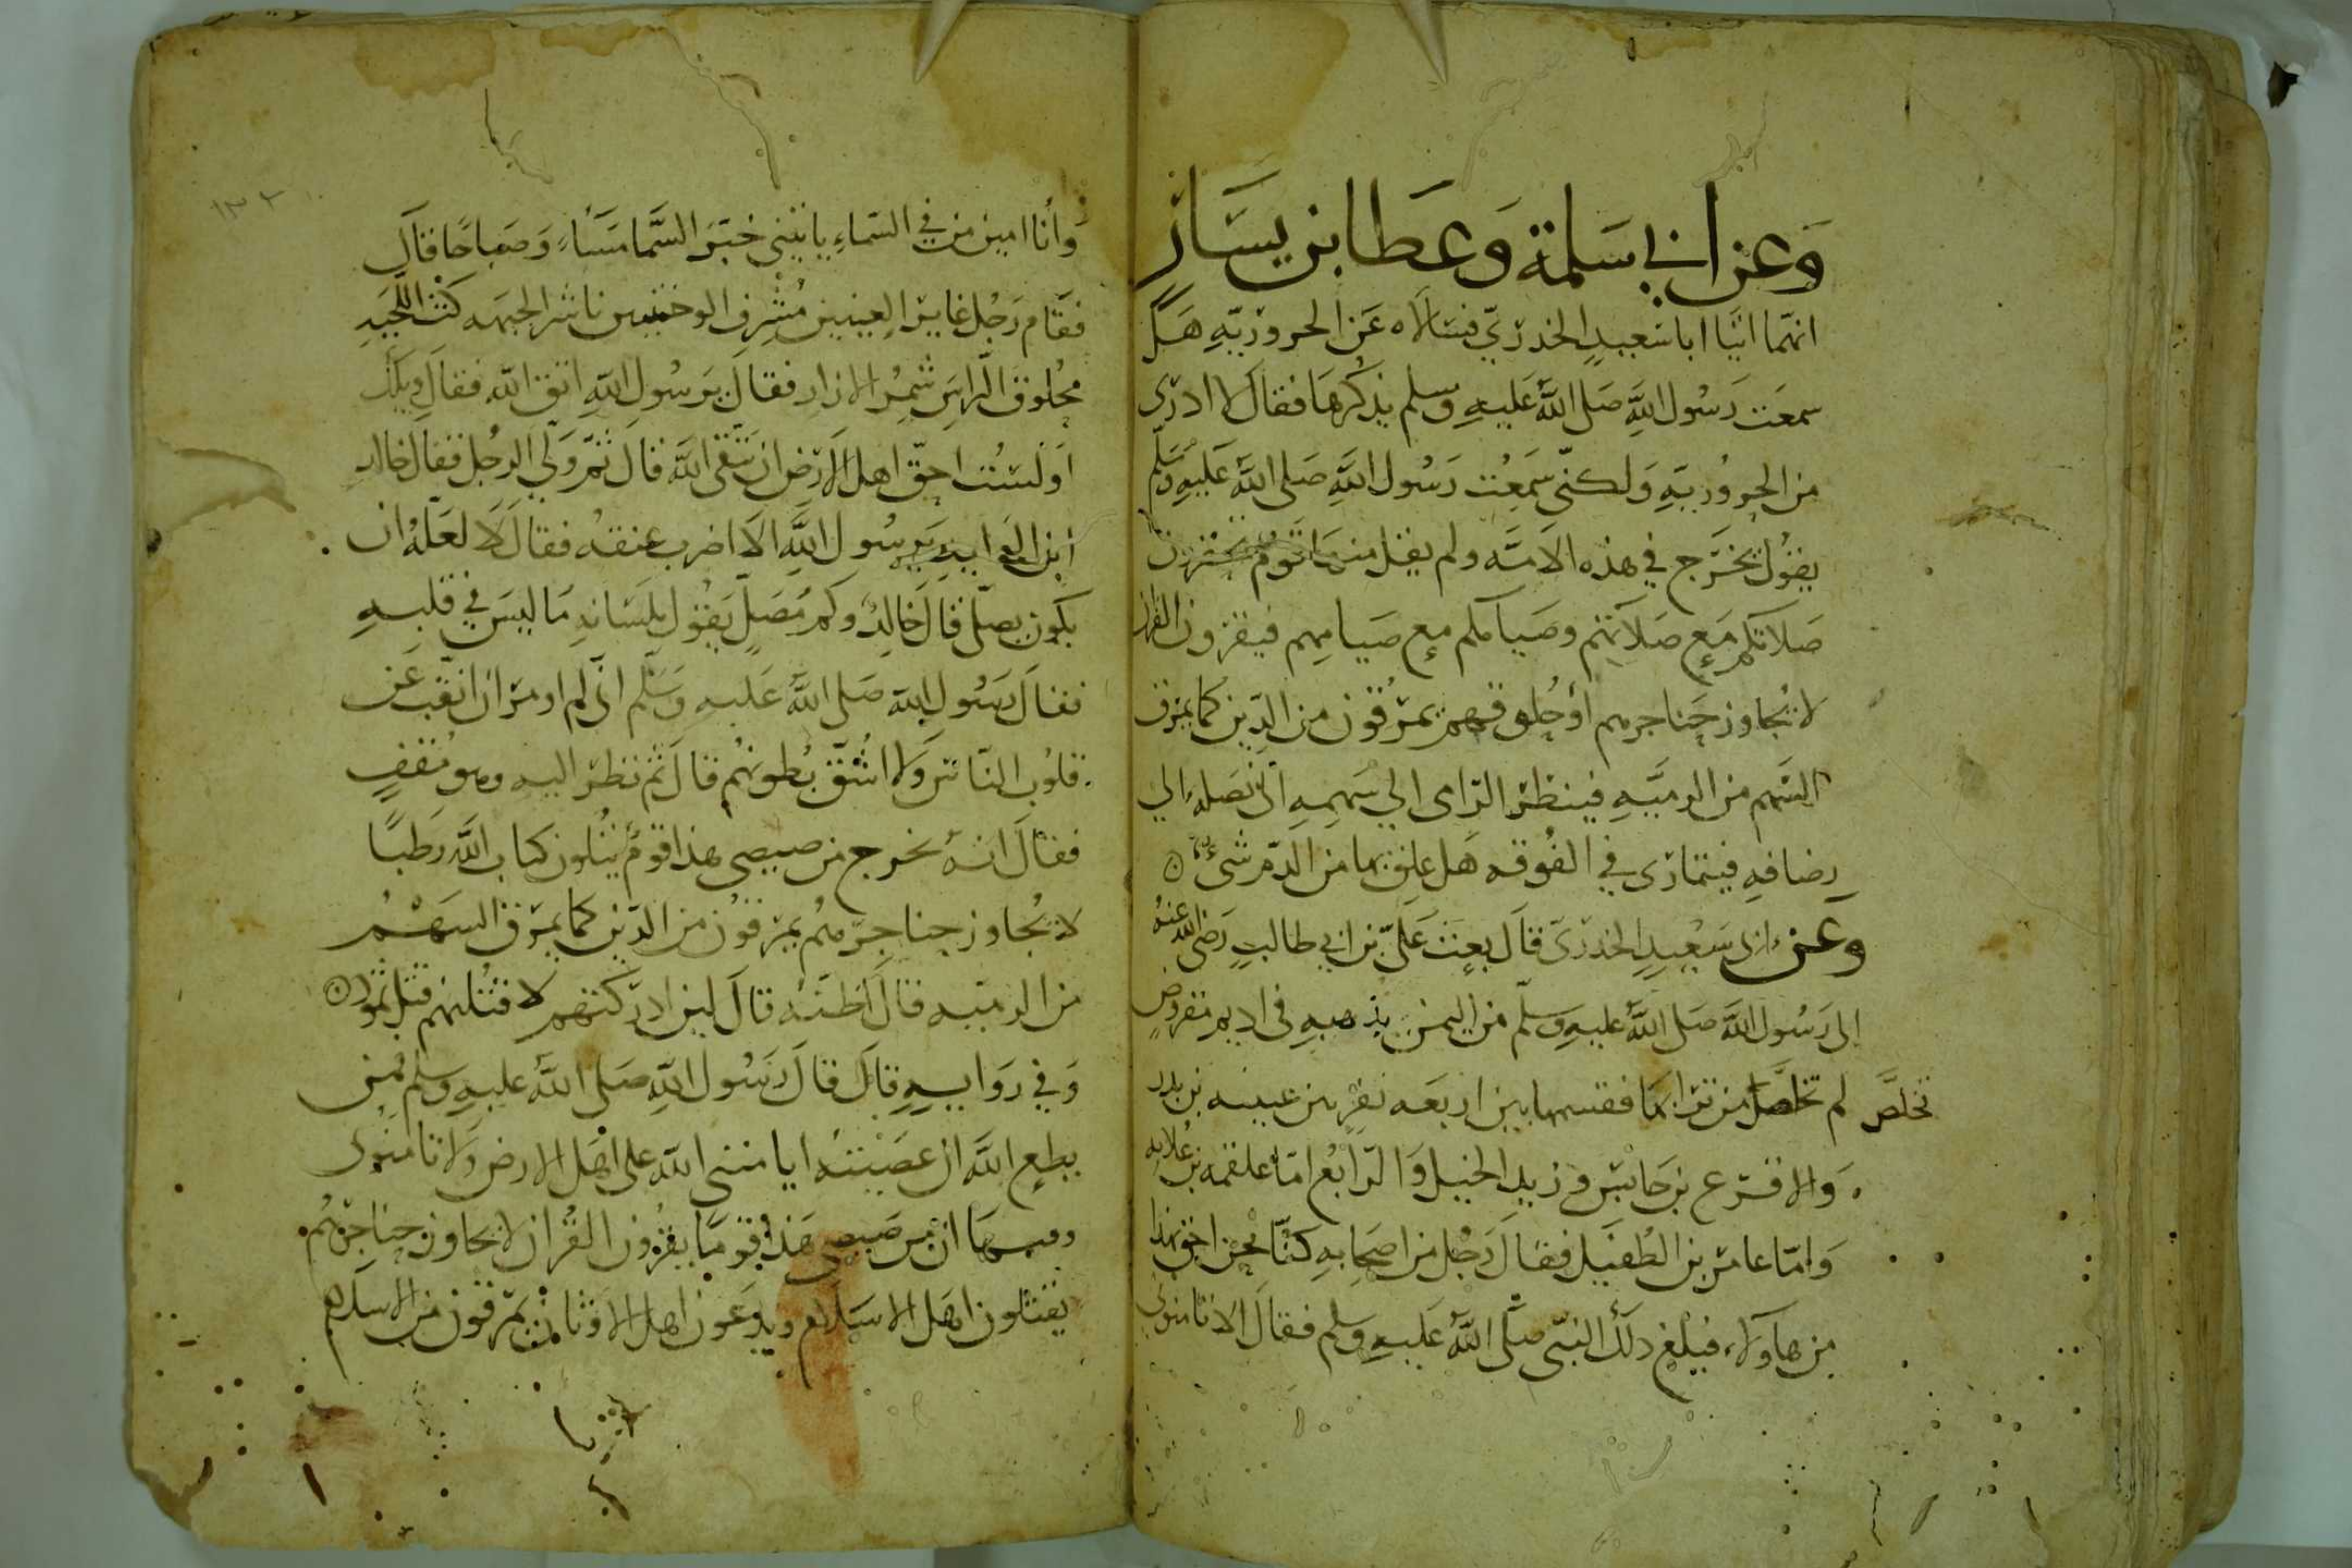 وَعن ابي سَلمة وَعَطا بن يسَار
انهما اتيا ابا سَعيدٍ الخدري فسَالاه عَن الحروريّهِ هَل
سمعَت رَسُول اللهِ صَلى اللهُ عَليهِ وسلم يذكُرهَا فقال لا ادرى
من الحرُوريّهِ وَلكنّى سَمِعْت رَسُول اللهِ صَلى اللهُ عَليهِ وسَلم
يقوُل يخرَج في هذه الامَّه ولم يقل منهَا قومٌ تحقرون
صَلاتكم مَع صَلاتهم وصَيامكم مع صَيامِهم فيقرون القران
لا يُجاوز حَناجرهم أو حُلوقهم يمرُقون من الدّين كما يمرق
السَّهم من الرميَّهِ فينظر الرّامى الي سَهمِهِ الى نصَلهِ الي
رضافهِ فيتمارَى في الفُوقه هَل علِق بها من الدّم شىءٌ
وعَن ابى سَعْيدٍ الخدرىّ قالَ بعث عَلىّ بن ابي طالبٍ رَضى الله عنهُ
الى رَسُول اللهِ صَلى اللهُ عليهِ وسلّم من اليمن بذهبهٍ فى اديم مقروض
تخلصَّ لم تخلصَّل من ترابها فقسمها بين اربعَه نفرٍ بين عيينه بن بدر
وَالاقرَع بن حَابسٍ وزيد الخيل وَالرّابعُ امّا علقمه بن عُلاثه
وَامّا عامر بن الطُفيَل فقالَ رَجُل من اصحابهِ كنّا نحن احَق بهذا
من هاولاء فبلغ ذلكَ النبّى صَلى اللهُ عَليهِ وسلم فقالَ الا تامنونى
وَأنا امين من في السّماءِ ياتيني خبَرَ السَّما مسَاءً وَصَباحًا فقالَ
فقَام رَجُل غاير العينين مُشرِف الوجنتين ناشر الجبهه كثّ اللّحيَهِ
مَحُلوقَ الّراسَ شَمِرُ الازار فقالَ يَرسُول اللهِ اتق الله فقالَ ويلكَ
اَوَلسْتُ احقّ اهل الارَض ان يتَقى اللهَ قالَ ثمّ وَلّي الرجُل فقالَ خالد
ابن الوَليد يَرسُول اللهِ الاَ اضرب عنقهُ فقالَ لَا لعَلهُ ان
يكون يصلّى قالَ خالدٌ وكم مُصَلٍّ يَقوُل بلسَانهِ مَا ليسَ في قلبهِ
فقالَ رسُول الله صَلى اللهُ عَليهِ وَسَلم انّى لم اومَر ان انقّب عَن
قلوُب النّاس وَلا اشُقّ بُطونهُم قالَ ثم نظر اليهِ وهو مُقفٍ
فقالَ انهُ يخرج من ضيضى هذا قومٌ يَتلون كتاب اللهِ رَطبًا
لا يُجاوز حناجرهُم يمرقوُن من الدّين كما يمرق السَهْمُ
من الرميّه قالَ اَظنّه قالَ لين ادركتهم لاقتُلنهم قتل ثمود
وَفي رَوايهٍ قالَ قالَ رَسُول اللهِ صَلى اللهُ عليهِ وسلم فمن
يطع اللهَ ان عصَيْتهُ ايامنني اللهُ على اهْل الارض وَلا تامنونى
وفيهَا ان من ضيضى هَذا قومًا يقرُون القُران لا يجاوز حناجَرهُم
يقتلون اهَل الاسَلام ويدعَون اهل الاوثان يمرقون من الاسلام